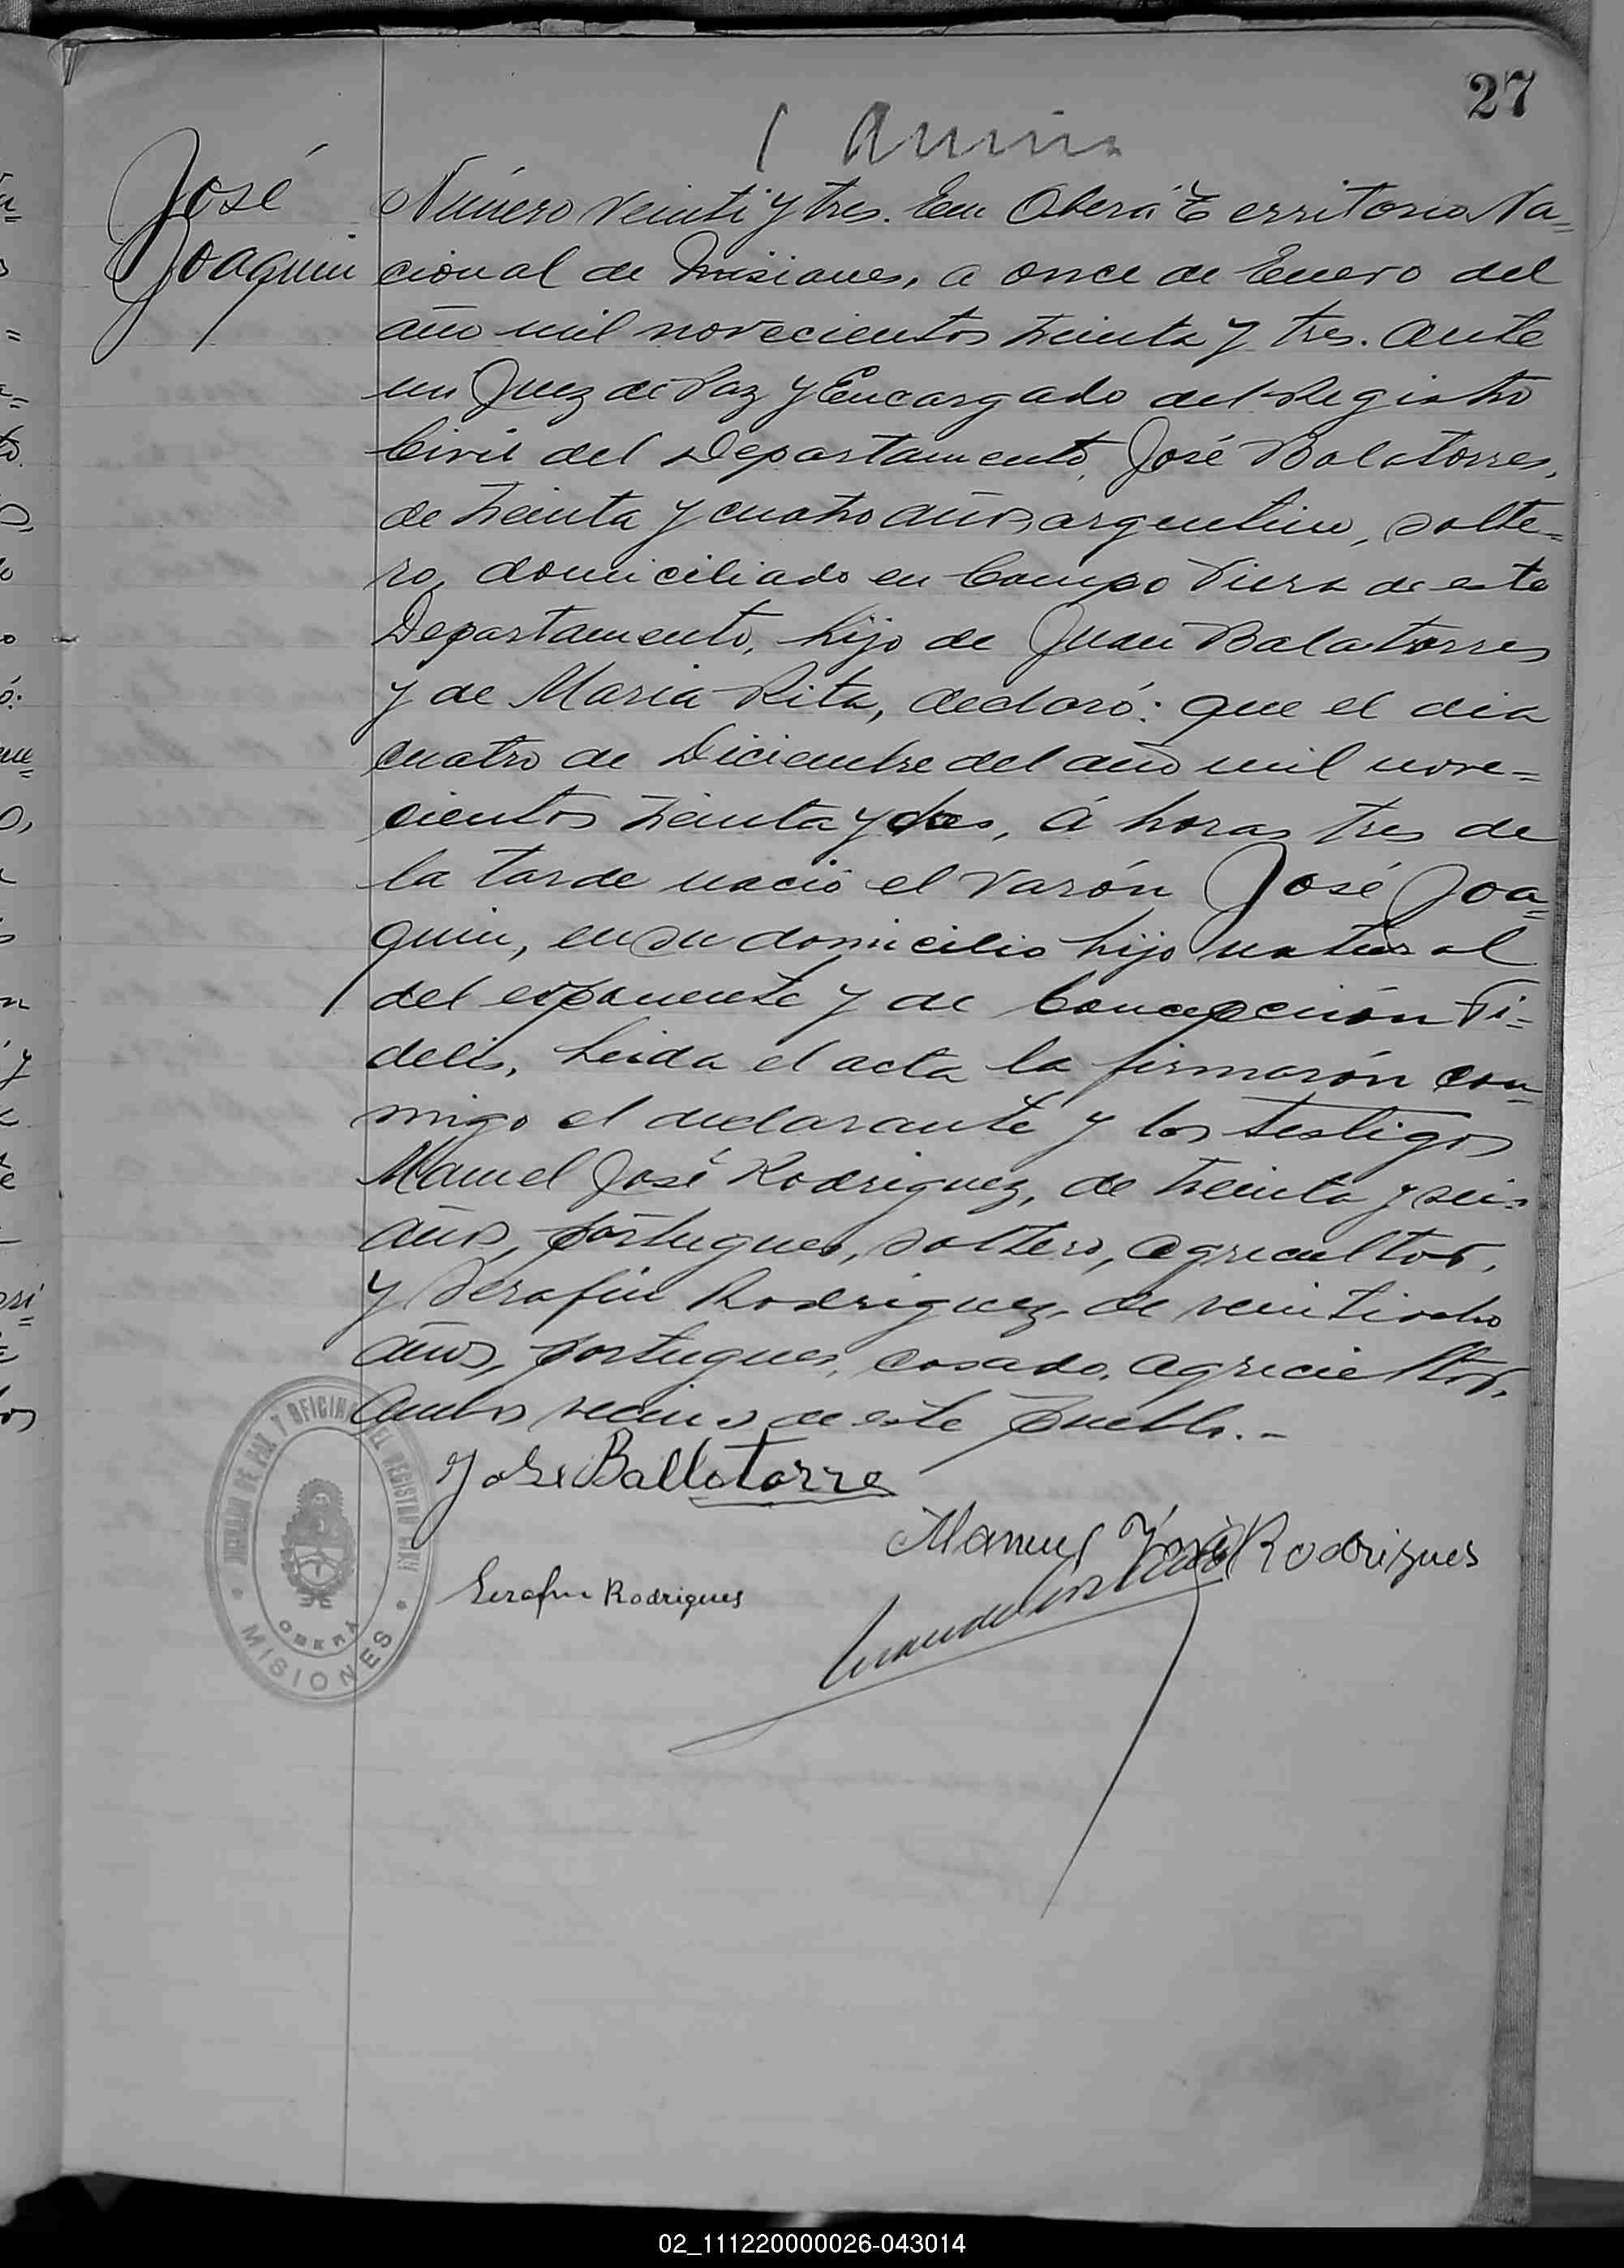 27
José
Joaquin
Número veinti y tres. En Oberá Territorio Na=
cional de Misiones, a once de Enero del
año mil novecientos treinta y tres. Ante
mi Juez de Paz y Encargado del Registro
Civil del Departamento, José Balatorres,
de treinta y cuatro años, argentino, solte=
ro, domiciliado en Campo Viera de este
Departamento, hijo de Juan Balatorres
y de Maria Rita, declaró: que el dia
cuatro de Diciembre del año mil nove=
cientos treinta y dos, á horas tres de
la tarde nació el varón José Joa=
quin, en su domicilio hijo natural
del exponente y de Concepción Fi=
delis, Leida el acta la firmarón con=
migo el declarante y los testigos
Manuel José Rodriguez, de treinta y seis
años, portugues, soltero, agricultor,
y Serafin Rodriguez, de veintiocho
años, portugues, casado, agricultor,
ambos vecinos de este pueblo.-
José Ballatorre
Manuel José Rodrigues
Serafin Rodrigues
JUZGADO DE PAZ Y OFICINA DEL REGISTRO CIVIL
OBERÁ
MISIONES
02_111220000026-043014